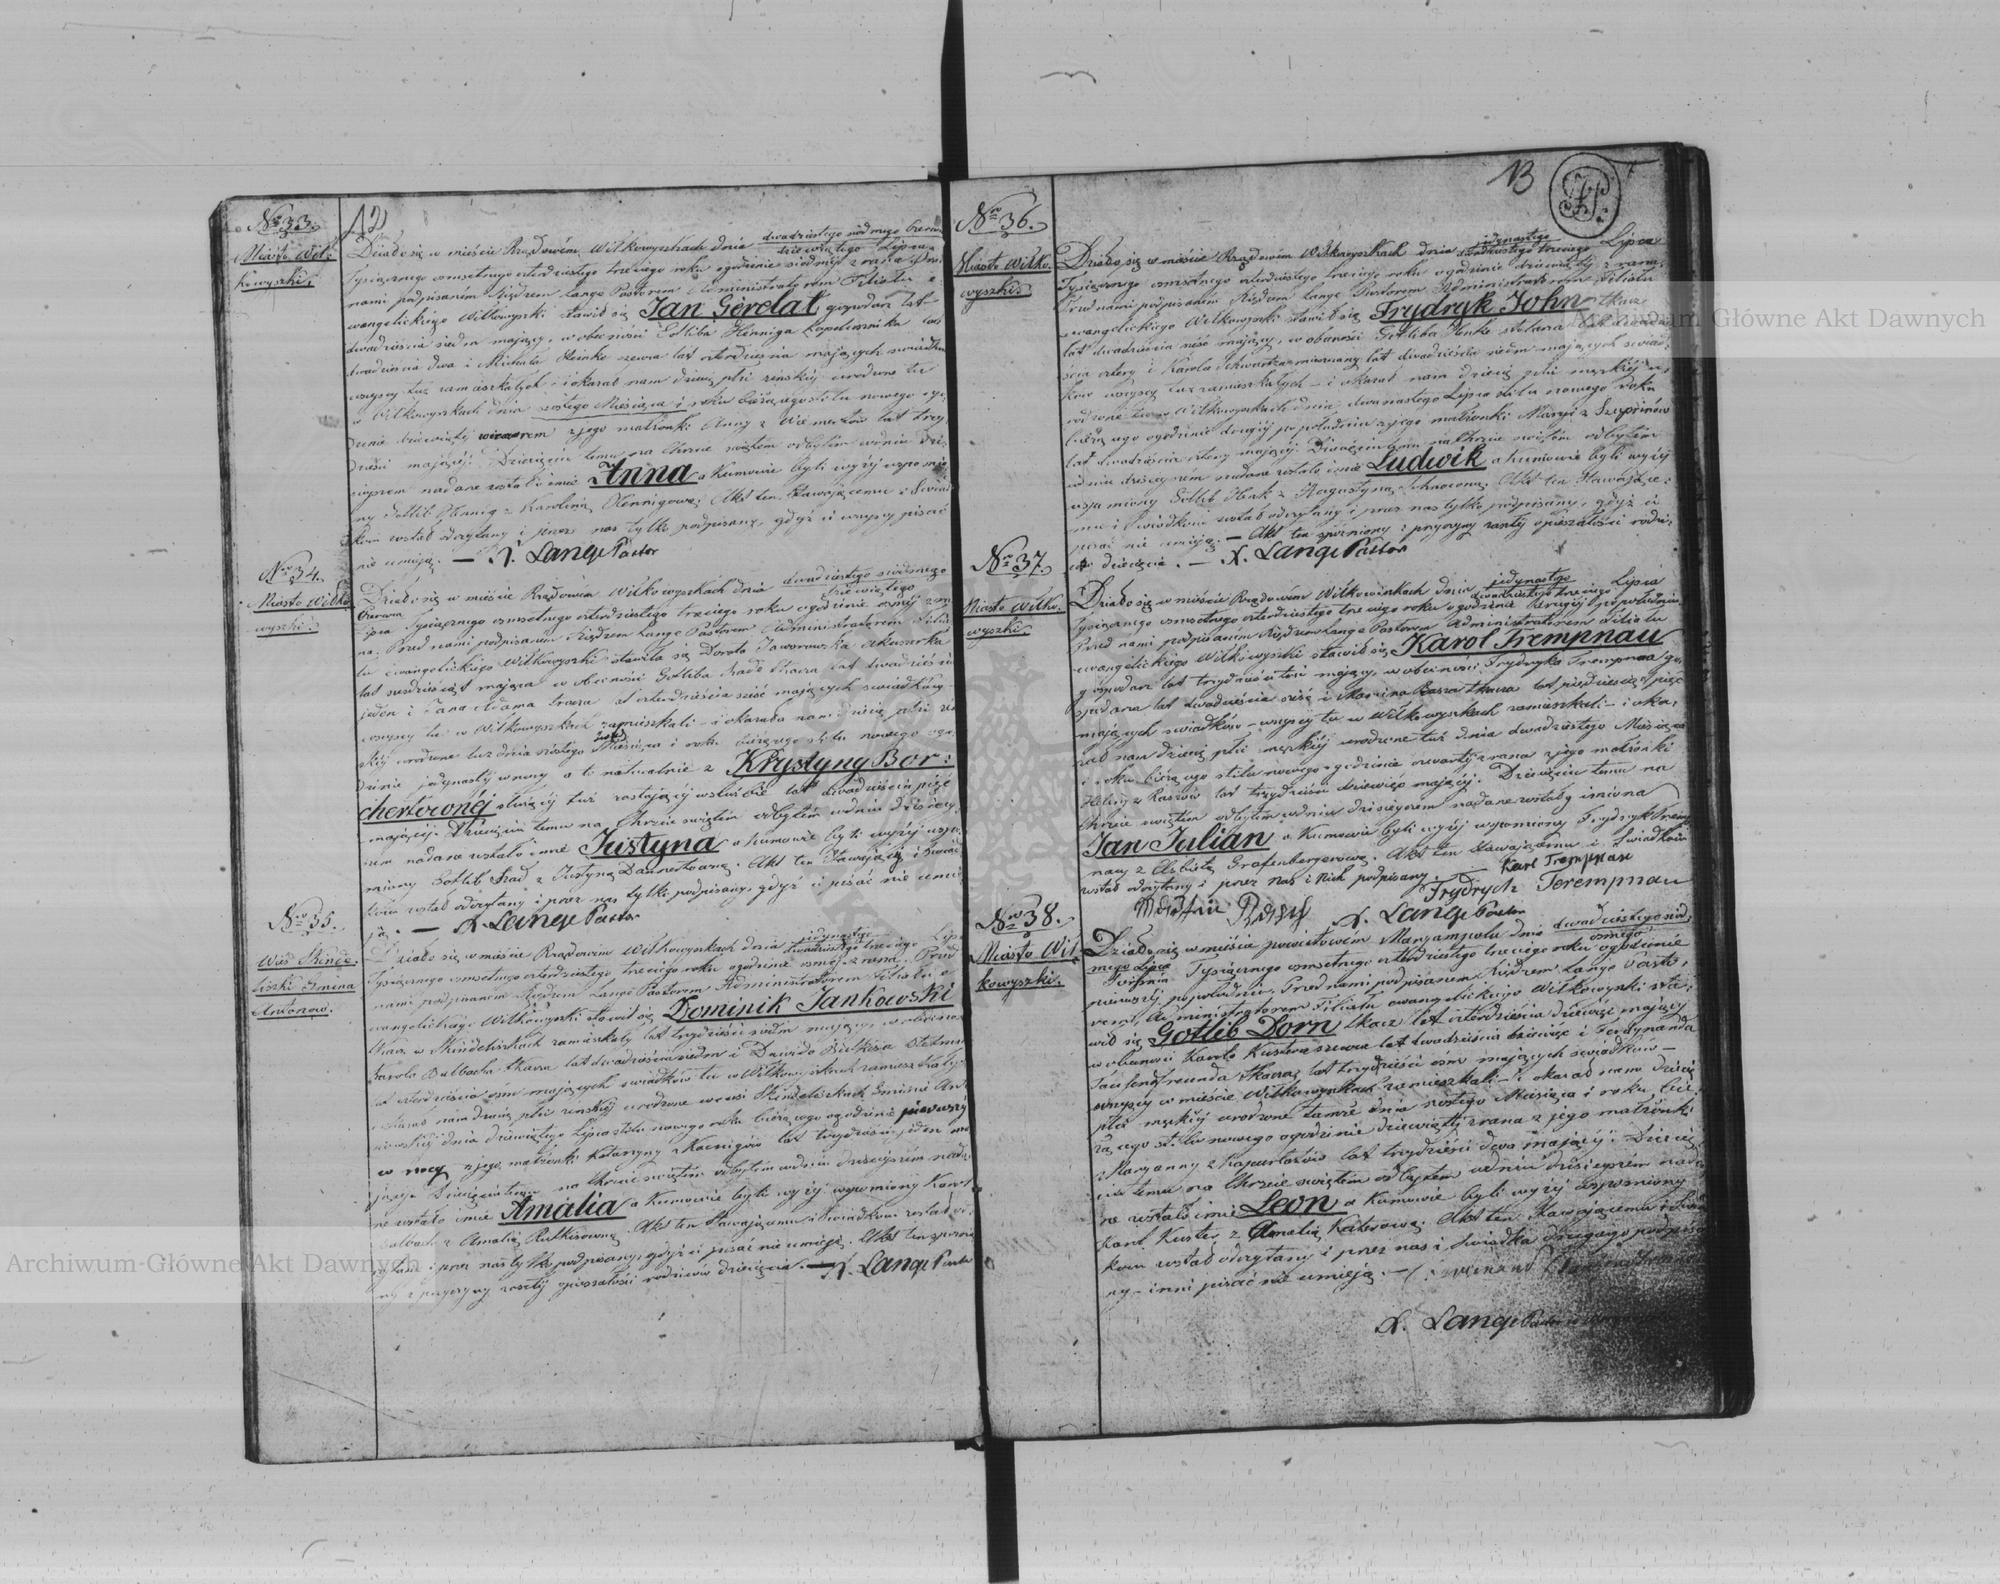 12
No 33.
Miasto Wił-
kowyszki.
Działo się w mieście Rządowém Wiłkowyszkach dnia dwudziestego siódmego Czerw:
dziewiątego Lipca
Tysiącznego ośmsetnego czterdziestego trzeciego roku o godzinie siódmej z rana. Przed
nami podpisaném Xiędzem Lange Pastorem Administratorem Filiału e-
wangelickiego Wiłkowyszki stawił się Jan Gerdat gospodarz lat
dwadzieścia siedm mający, w obecności Gotliba Henniga lat
dwadzieścia dwa i Michała Heinke szewca lat czterdzieścia mających świadków
wszyscy tuż zamieszkałych i okazał nam dziecię płci żeńskiéj urodzone tu
w Wiłkowyszkach dnia szóstego Miesiąca i roku bieżącego stilu nowego o go-
dzinie dziewiątéj wieczorem z jego małżonki Anny z lat trzy-
dzieści mającéj. Dziecięciu temu na Chrzcie świętém odbytém w dniu dzi-
siejszem nadane zostało imie Anna a Kumowie byli wyżéj wspomnio-
ny Gotlib Hennig z Karoliną Hennigową. Akt ten Stawającemu i Świad-
kom został odczytany i przez nas tylko podpisany, gdyż ci wszyscy pisać
nie umieją. — X. Lange Pastor
No 34.
Miasto Wiłko-
wyszki.
Działo się w mieście Rządowém Wiłkowyszkach dnia dwudziestego siódmego
Czerwca dziewiątego
Lipca Tysiącznego ośmsetnego czterdziestego trzeciego roku o godzinie ósméj z ra-
na. Przed nami podpisaném Xiędzem Lange Pastorem Administratorem Filia-
łu ewangelickiego Wiłkowyszki stawiła się Dorota Jaworowska akuszerka
lat sześdziesiąt mająca w obecności Gotliba Szade tkacza lat dwadzieścia
jeden i Jana Adama tkacza lat czterdzieścia sześć mających świadków
wszyscy tu w Wiłkowyszkach zamieszkali i okazała nam dziecię płci żeń-
skiéj urodzone tuż dnia szóstego Miesiąca i roku bieżącego stylu nowego o go-
dzinie jedynastéj w nocy a to naturalnie z Krystyny Bor:
chertownéj służącéj tuż zostającéj w służbie lat dwadzieścia pięć
mającéj. Dziecięciu temu na Chrzcie świętém odbytém w dniu dzisiejszym
nadane zostało imie Justyna a kumowie byli wyżéj wspo-
miony Gotlib Szad z Justyną Dannertowną. Akt ten Stawającéj i Świad-
kom został odczytany i przez nas tylko podpisany, gdyż ci pisać nie umie-
ją. — X. Lange Pastor
No 35.
Wieś Skinde-
liszki Gmina
Antonow.
Działo się w mieście Rządowém Wiłkowyszkach dnia jedynastego
dwudziestego trzeciego Lipca
Tysiącznego ośmsetnego czterdziestego trzeciego roku o godzinie ósméj z rana. Przed
nami podpisaném Xiędzem Lange Pastorem Administratorem Filiału e-
wangelickiego Wiłkowyszki stawił się Dominik Jankowski
tkacz w Skindeliszkach zamieszkały lat trzydzieści siedm mający, w obecności
Karola Balbacha tkacza lat dwadzieścia siedm i Dawida
lat czterdzieścia ośm mających świadków tu w Wiłkowyszkach zamieszkałych
i okazał nam dziecię płci żeńskiéj urodzone w wsi Skindeliszkach Gminie Ant-
onowskiéj dnia dziewiątego Lipca stilu nowego roku bieżącego o godzinie pierwszéj
w nocy z jego małżonki Katarzyny z Koenigów lat trzydzieści jeden ma-
jącéj. Dziecięciu temu na Chrzcie świętém odbytém w dniu dzisiejszém nada-
ne zostało imie Amalia a Kumowie byli wyżéj wspomiony Karol
Balbach z Amalią Rutkisowną. Akt ten Stawającemu i Świadkom został od-
czytany i przez nas tylko podpisany, gdyż ci pisać nie umieją. Akt ten spóźnio-
ny z przyczyny zaszłéj opieszałości rodziców dziecięcia. — X. Lange Pastor
13
No 36.
Miasto Wiłko-
wyszki.
Działo się w mieście Rządowém Wiłkowyszkach dnia jedynastego
dwudziestego trzeciego Lipca
Tysiącznego ośmsetnego czterdziestego trzeciego roku o godzinie dziewiątéj z rana.
Przed nami podpisaném Xiędzem Lange Pastorem Administratorem Filiału
ewangelickiego Wiłkowyszki stawił się Frydryk John tkacz
lat dwadzieścia sześć mający, w obecności Gotliba Henke stolarza lat dwadzie-
ścia cztery i Karola Schwartza lat dwadzieścia siedm mających świad-
ków wszyscy tuż zamieszkałych — i okazał nam dziecię płci męzkiéj u-
rodzone tu w Wiłkowyszkach dnia dwunastego Lipca stilu nowego roku
bieżącego o godzinie drugiéj po południu z jego małżonki Maryi z
lat dwadzieścia cztery mającéj. Dziecięciu temu na Chrzcie świętém odbytém
w dniu dzisiejszém nadane zostało imie Ludwik a kumowie byli wyżéj
wspomiony Gotlib Henke z Augustyną Johnową. Akt ten Stawające-
mu i świadkom został odczytany i przez nas tylko podpisany, gdyż ci
pisać nie umieją. — Akt ten spóźniony z przyczyny zaszłéj opieszałości rodzi-
ców dziecięcia. — X. Lange Pastor
No 37.
Miasto Wiłko-
wyszki.
Działo się w mieście Rządowém Wiłkowiszkach dnia jedynastego
dwudziestego trzeciego Lipca
Tysiącznego ośmsetnego czterdziestego trzeciego roku o godzinie drugiéj po południu.
Przed nami podpisaném Xiędzem Lange Pastorem Administratorem Filiału
ewangelickiego Wiłkowyszki stawił się Karol Trempnau
gospodarz lat trzydzieści trzi mający, w obecności Frydryka Trempnau go-
spodarza lat dwadzieścia sześć i Marcina tkacza lat pięćdziesiąt pięć
mających świadków — wszyscy tu w Wiłkowyszkach zamieszkali — i oka-
zał nam dziecię płci męzkiéj urodzone tuż dnia dwudziestego Miesiąca
i roku bieżącego stilu nowego o godzinie czwartéj z rana z jego małżonki
Heleny z lat trzydzieści dziewięć mającéj. Dziecięciu temu na
Chrzcie świętém odbytém w dniu dzisiejszem nadane zostały imiona
Jan Julian a Kumowie byli wyżéj wspomiony Frydryk Tremp-
nau z Elsbietą Grafenbergerową. Akt ten stawającemu i Świadkom
został odczytany i przez nas i nich podpisany. — Karl Trempnau
Frydrych Terempnau
X. Lange Pastor
No 38.
Miasto Wił-
kowyszki.
Działo się w mieście powiatowém Maryampolu dnia dwudziestego siód-
mego Lipca ósmego
Sierpnia Tysiącznego ośmsetnego czterdziestego trzeciego roku o godzinie
pierwszéj po południu. Przed nami podpisanem Xiędzem Lange Pasto-
rem, Administratorem Filiału ewangelickiego Wiłkowyszki sta-
wił się Gotlib Dorn tkacz lat czterdzieścia dziewięć mający
w obecności Karola Kustra szewca lat dwadzieścia dziewięć i Ferdynanda
tkacza lat trzydzieści ośm mających świadków —
wszyscy w mieście Wiłkowyszkach zamieszkali — i okazał nam dziecię
płci męzkiéj urodzone tamże dnia szóstego Miesiąca i roku bie-
żącego stilu nowego o godzinie dziewiątéj z rana z jego małżonki
Maryanny z lat trzydzieści dwa mającéj. Dziecię-
ciu temu na Chrzcie świętém odbytém w dniu dzisiejszém nada-
ne zostało imie Leon a Kumowie byli wyżéj wspomniony
Karl Kuster z Amalią Kusterową. Akt ten Stawającemu i Świad-
kom został odczytany i przez nas i świadka drugiego podpisa-
ny — inni pisać nie umieją. —
X. Lange Pastor
Archiwum Główne Akt Dawnych
Archiwum Główne Akt Dawnych